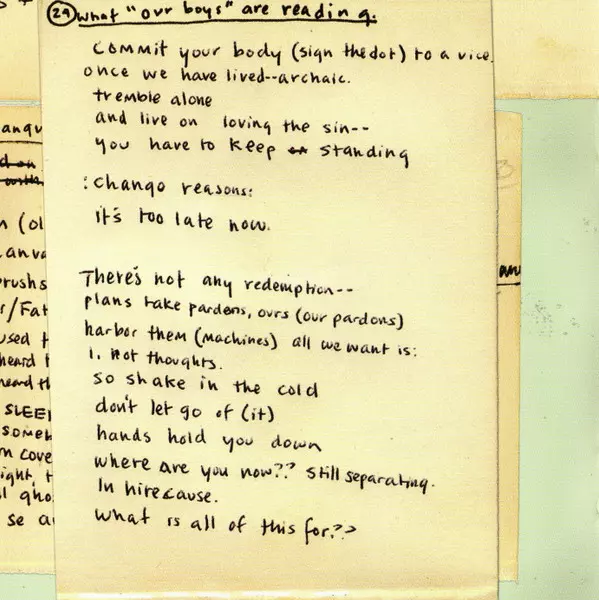 29 What "our boys" are reading.
commit your body (sign the dot) to a vice.
once we have lived--archaic.
tremble alone
and live on loving the sin--
you have to keep standing
:change reasons:
it's too late now.
There's not any redemption--
plans take pardons, ours (our pardons)
harbor them (machines) all we want is:
1. not thoughts.
so shake in the cold
don't let go of (it)
hands hold you down
where are you now?? still separating.
In hirecause.
what is all of this for??